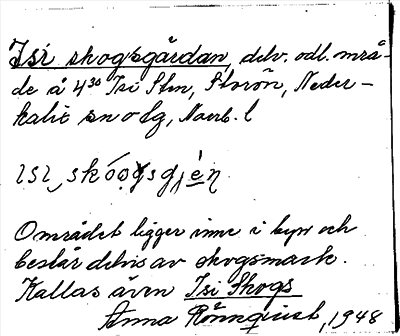 Isi skogsgärdan, delv. odl. områ-
de å 4³⁰ Isi Sfn, Storön, Neder-
kalix sn o lg, Norrb. l
ısı skóogsgjèn
Området ligger inne i byn och
består delvis av skogsmark.
Kallas även Isi Skogs
Anna Rönnqvist, 1948